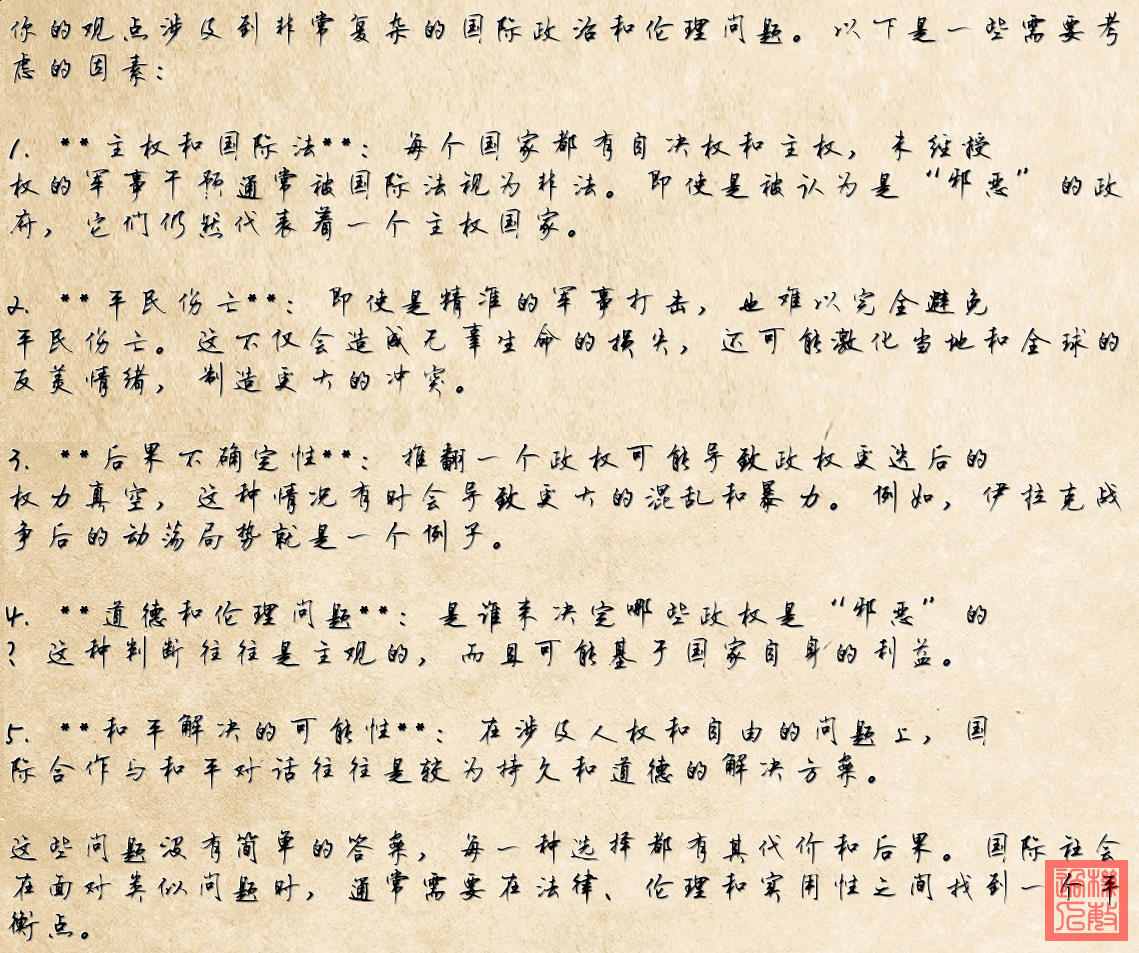 你的观点涉及到非常复杂的国际政治和伦理问题。以下是一些需要考
虑的因素：
1. **主权和国际法**：每个国家都有自决权和主权，未经授
权的军事干预通常被国际法视为非法。即使是被认为是“邪恶”的政
府，它们仍然代表着一个主权国家。
2. **平民伤亡**：即使是精准的军事打击，也难以完全避免
平民伤亡。这不仅会造成无辜生命的损失，还可能激化当地和全球的
反美情绪，制造更大的冲突。
3. **后果不确定性**：推翻一个政权可能导致政权更迭后的
权力真空，这种情况有时会导致更大的混乱和暴力。例如，伊拉克战
争后的动荡局势就是一个例子。
4. **道德和伦理问题**：是谁来决定哪些政权是“邪恶”的
？这种判断往往是主观的，而且可能基于国家自身的利益。
5. **和平解决的可能性**：在涉及人权和自由的问题上，国
际合作与和平对话往往是较为持久和道德的解决方案。
这些问题没有简单的答案，每一种选择都有其代价和后果。国际社会
在面对类似问题时，通常需要在法律、伦理和实用性之间找到一个平
衡点。